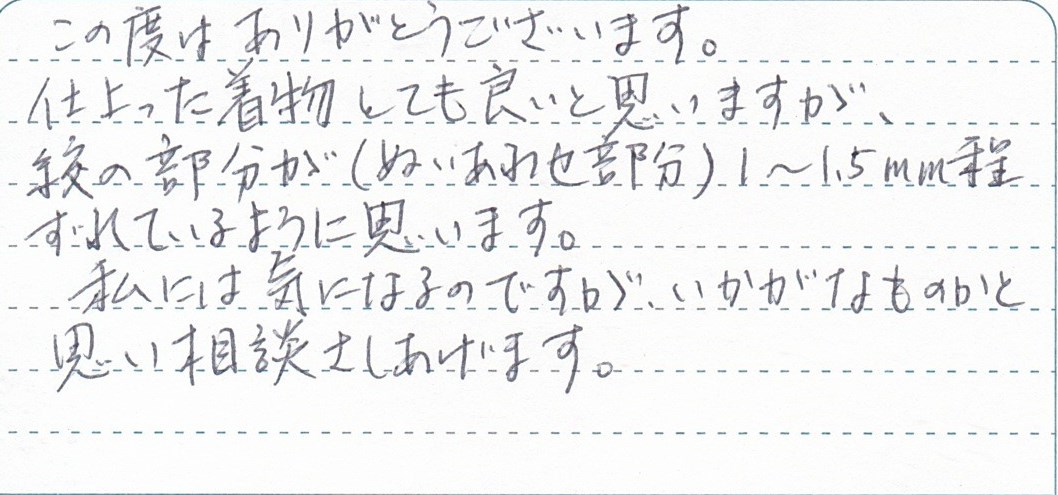 この度はありがとうございます。
仕上った着物とても良いと思いますが、
紋の部分が(ぬいあわせ部分)1〜1.5mm程
ずれているように思います。
私には気になるのですが、いかがなものかと
思い相談さしあげます。